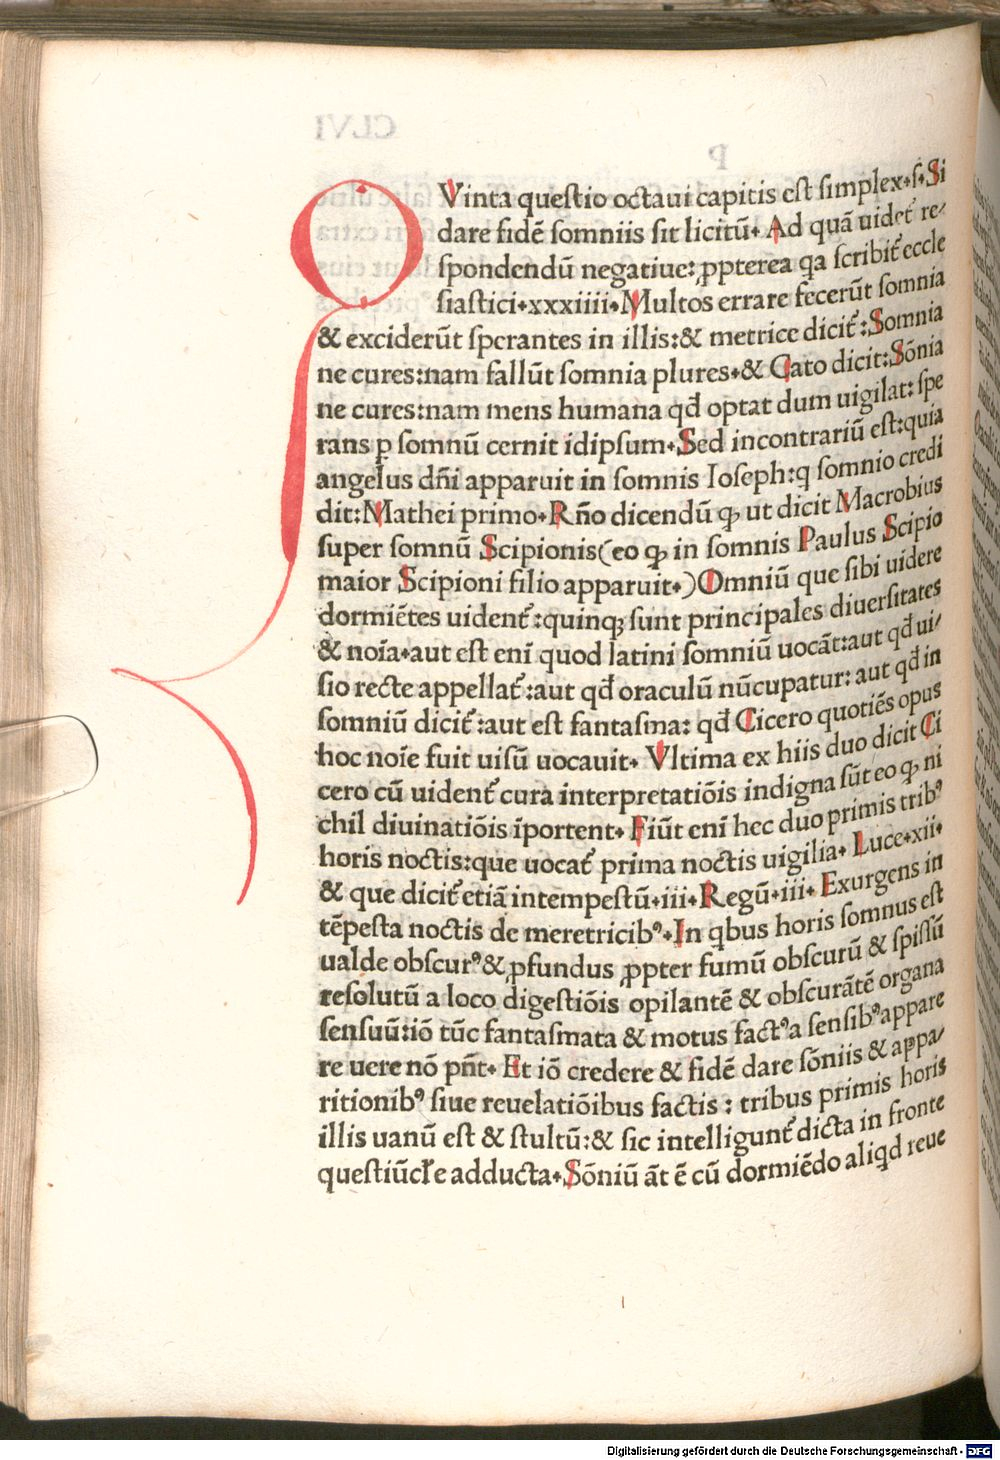 QVinta questio octaui capitis est simplex.s.Si
dare fidē somniis sit licitū. Ad quā uidet᷑ re⸗
spondendū negatiue: ꝓpterea qa scribit᷑ eccle
siastici.xxxiiii.Multos errare fecerūt somnia
& exciderūt sperantes in illis:& metrice dicit᷑:Somnia
ne cures:nam fallūt somnia plures.& Cato dicit:Sōnia
ne cures:nam mens humana qđ optat dum uigilat: spe
rans ꝑ somnū cernit idipsum.Sed incontrariū est:quia
angelus dñi apparuit in somnis Ioseph:q somnio credi
dit:Mathei primo.Rño dicendū ꝙ ut dicit Macrobius
super somnū Scipionis(eo ꝙ in somnis Paulus Scipio
maior Scipioni filio apparuit.)Omniū que sibi uidere
dormiētes uident᷑:quinqꝫ sunt principales diuersitates
& noīa.aut est eni quod latini somniū uocāt:aut qđ ui⸗
sio recte appellat᷑:aut qđ oraculū nūcupatur: aut qđ in
somniū dicit᷑:aut est fantasma: qđ Cicero quotiēs opus
hoc noīe fuit uisū uocauit. Vltima ex hiis duo dicit Ci
cero cū uident᷑ cura interpretatiōis indigna sūt eo ꝙ ni
chil diuinatiōis īportent. Fiūt eni hec duo primis tribꝰ
horis noctis:que uocat᷑ prima noctis uigilia. Luce.xii.
& que dicit᷑ etiā intempestū.iii.Regū.iii. Exurgens in
tēpesta noctis de meretricibꝰ.In qbus horis somnus est
ualde obscurꝰ& ꝓfundus ꝓpter fumū obscurū & spissū
resolutū a loco digestiōis opilantē & obscurātē organa
sensuū:iō tūc fantasmata & motus factꝰa sensibꝰappare
re uere nō pñt. Et iō credere & fidē dare sōniis & appa⸗
ritionibꝰ siue reuelatiōibus factis : tribus primis horis
illis uanū est & stultū:& sic intelligunt᷑ dicta in fronte
questiūcłe adducta.Sōniū āt ē cū dormiēdo aliqd reue
Digitalisierung gefördert durch die Deutsche Forschungsgemeinschaft - DFG